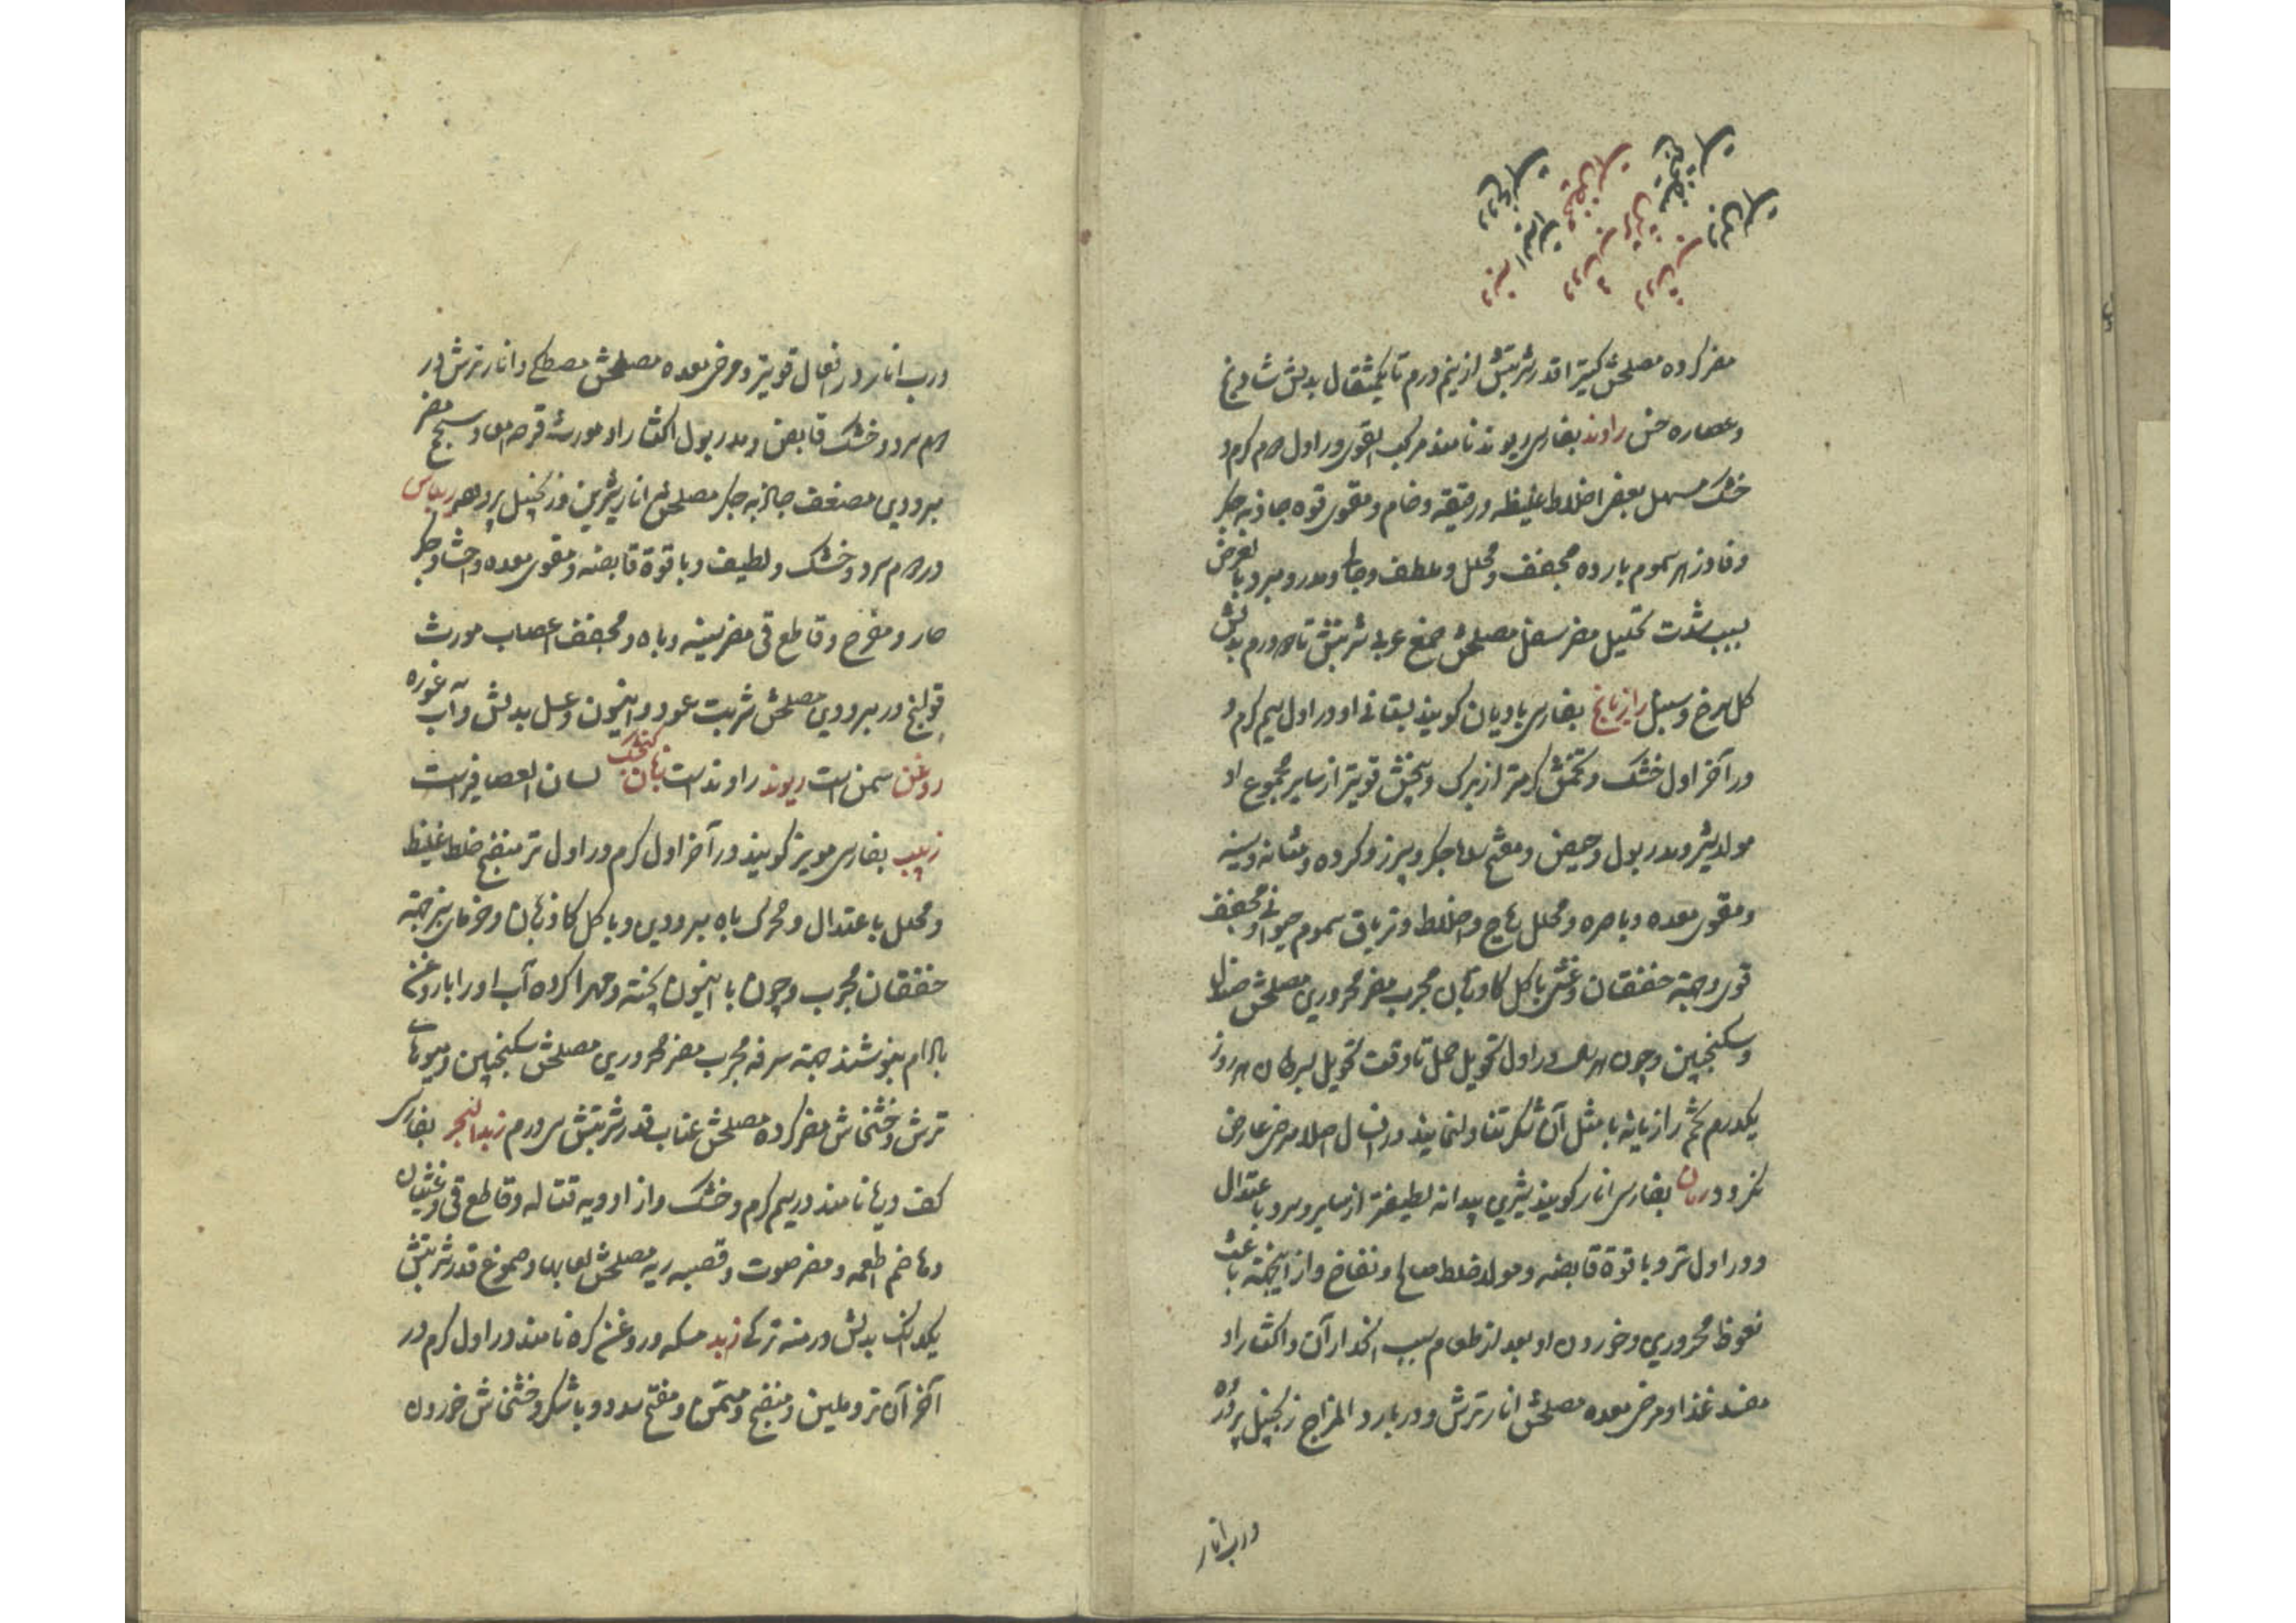 مضر کرده مصلحش کتیرا قدر شربتش از نیم درم تا یکمثقال بدلش شادنج
و عصاره خس راوند بفارسی ریوند نامند مرکب القوی در اول دوم کرم و
خشک مسهل بعض اخلاط غلیظه و رقیقه و خام و مقوی قوه جاذبه جکر
و فادزهر سموم بارده مجفف و محلل و ملطف و جالی و مدر و مبرد بالعرض
بسبب شدت تحلیل مضر سفل مصلحش صمغ عربی شربتش تا دو درم بدلش
کل سرخ و سنبل رازیانج بفارسی بادیان کویند بستانی او در اول سیم کرم و
در آخر اول خشک و تخمش کرمتر از برک و بیخش قویتر از سایر مجموع او
مولد شیر و مدر بول و حیض و مفتح سدد جکر و سپرز و کرده و مثانه و سینه
و مقوی معده و باصره و محلل ریاح و اخلاط و تریاق سموم حیوانی و مجفف
قوی و جهة خفقان و غشی با کل کاوزبان مجرب مضر محروری مصلحش صندل
و سکنجبین و چون در اول تحویل حمل تا وقت تحویل بسرطان هر روز
یکدرم تخم رازیانه با مثل آن شکر تناول نمایند در انسال اصلا مرض عارض
نکردد رمان بفارسی انار کویند شیرین بیدانه لطیفتر از سایر و سرد باعتدال
و در اول تر و با قوة قابضه و مولد خلط صالح و نفاخ و از اینجهته باعث
نعوظ محروری و خوردن او بعد از طعام سبب انحدار آن و اکثار او
مفسد غذا و مرخی معده مصلحش انار ترش و در بارد المزاج زنجبیل پرورده
و رب انار
و رب انار در افعال قویتر و مرخی معده مصلحش مصطکی و انار ترش در
دوم سرد و خشک قابض و مدر بول اکثار او مورث قرحه امعا و سحج مضر
مبرودین مضعف جاذبه جکر مصلحش انار شیرین و زنجبیل پرورده ریباس
در دوم سرد و خشک و لطیف و با قوة قابضه و مقوی معده و احشا و جکر
حار و مفرح و قاطع قی مضر سینه و باه و مجفف اعصاب مورث
قولنج در مبرودین مصلحش شربت عود و انیسون و عسل بدلش آب غوره
روغن سمن است ریوند راوند است زبان کنجشک لسان العصافیر است
زبیب بفارسی مویز کویند در آخر اول کرم در اول تر منضج خلط غلیظ
و محلل باعتدال و محرک باه مبرودین و با کل کاوزبان و خرمای سبز جهته
خفقان مجرب و چون با انیسون پخته و مهرا کرده آب او را با روغن
بادام بنوشند جهته سرفه مجرب مضر محروری مصلحش سکنجبین و میوهای
ترش و خشخاش مضر کرده مصلحش عناب قدر شربتش سی درم زبد البحر بفارسی
کف دریا نامند در سیم کرم و خشک و از ادویه قتاله و قاطع قی و غثیان
و هاضم اطعمه و مضر صوت و قصبه ریه مصلحش لعابها و صموغ قدر شربتش
یکدانک بدلش درمنه ترکی زبد مسکه و روغن کره نامند در اول کرم در
آخر آن تر و ملین و منضج و مسمن و مفتح سدد و با شکر و خشخاش خوردن